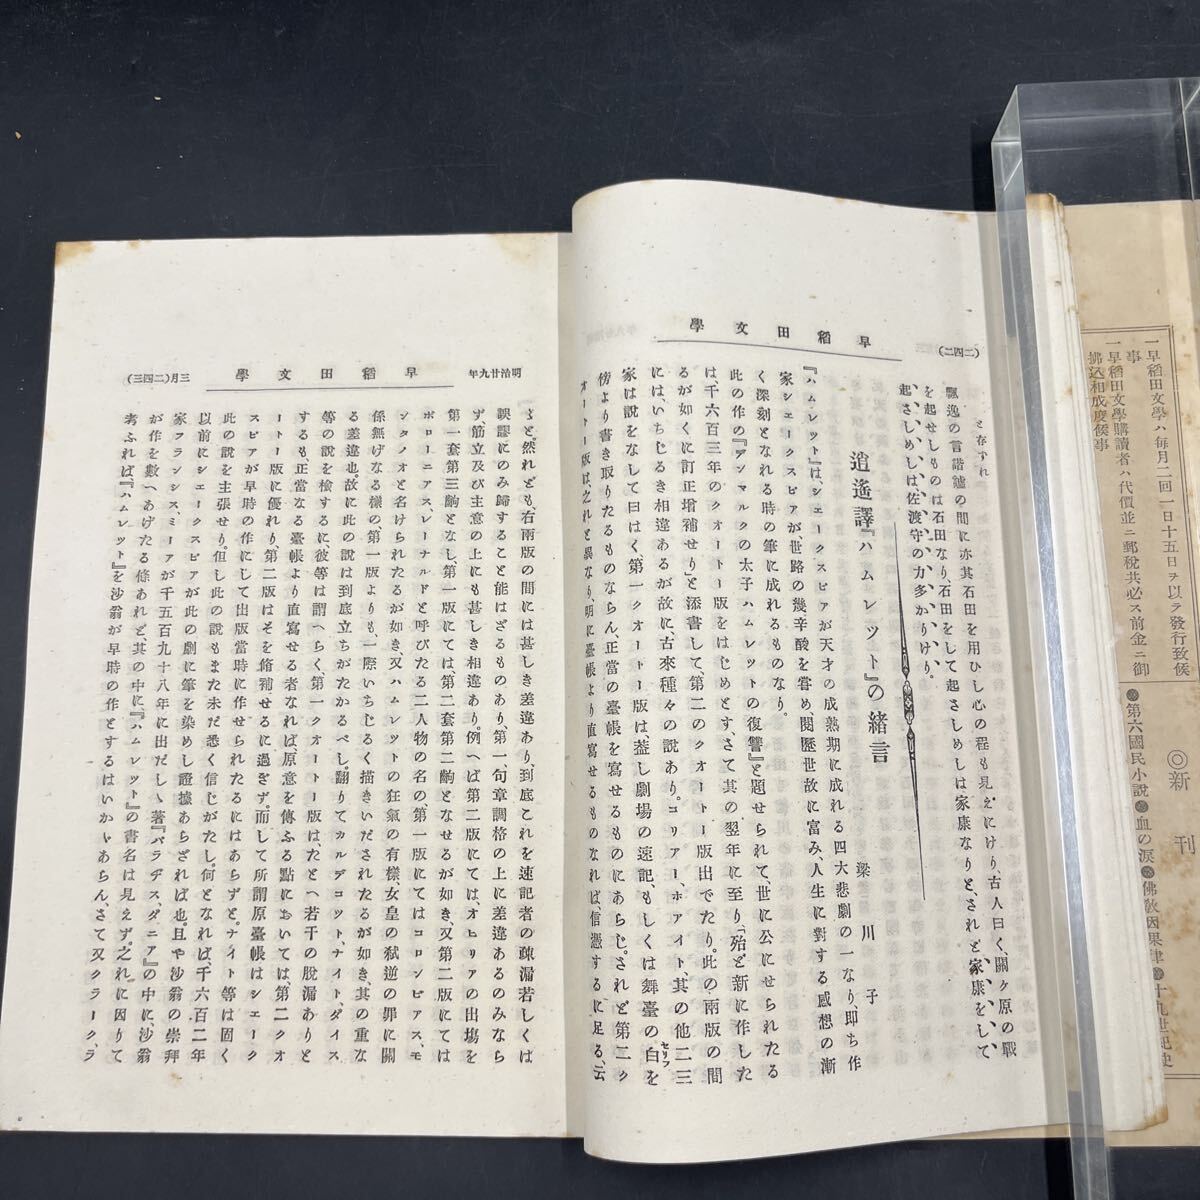 一早稻田文學ハ每月二回一日十五日ヲ以テ發行致候
事
一早稻田文學購讀者ハ代價並ニ郵稅共必ス前金ニ御
拂込相成度候事
◎新刊
●第六國民小說●血の淚●佛敎因果律●十九世紀史
(二四二)
早稻田文學
と存ずれ
飄逸の言諧謔の間に亦其石田を用ひし心の程も見えにけり、古人曰く、關ケ原の戰
を起せしものは石田なり、石田をして起さしめしは家康なりと、されど家康をして
起さしめしは佐渡守の力多かりけり。
逍遙譯『ハムレット』の緒言
梁川子
『ハムレット』は、シェークスピアが天才の成熟期に成れる四大悲劇の一なり即ち作
家シェークスピアが、世路の幾辛酸を嘗め閱歷世故に富み、人生に對する感想の漸
く深刻となれる時の筆に成れるものなり。
此の作の『デンマルクの太子ハムレットの復讐』と題せられて、世に公にせられたる
は、千六百三年のクオートー版をはじめとす、さて其の翌年に至り「殆ど新に作した
るが如くに訂正增補せり」と添書して、第二のクオートー版出でたり。此の兩版の間
には、いちじるき相違あるが故に、古來種々の說あり。コリアー、ホアイト、其の他二三
家は說をなして曰はく、第一クオートー版は、蓋し劇場の速記、もしくは舞臺の白を
セリフ
傍より書き取りたるものならん、正當の臺帳を寫せるものにあらじ。されど第二ク
オートー版は、之れと異なり、明に臺帳より直寫せるものなれば、信憑するに足る、云
明治廿九年
早稻田文學
三月(二四三)
々と。然れども、右兩版の間には甚しき差違あり、到底これを速記者の疎漏若しくは
誤謬にのみ歸すること能はざるものあり、第一、句章調格の上に差違あるのみなら
ず、筋立及び主意の上にも甚しき相違あり。例へば第二版にては、オヒリアの出塲を
第一套第三齣となし、第一版にては第二套第二齣となせるが如き。又第二版にては
ポローニアス、レーナルドと呼びたる二人物の名の第一版にてはコロンビアス、モ
ンタノオと名けられたるが如き、又ハムレットの狂氣の有樣、女皇の弑逆の罪に關
係無げなる樣の、第一版よりも、一際いちじるく描きいだされたるが如き、其の重な
る差違也。故に此の說は到底立ちがたかるべし。翻りてカルデコット、ナイト、ダイス
等の說を檢するに、彼等は謂へらく、第一クオートー版は、たとへ若干の脫漏ありと
するも、正當なる臺帳より直寫せる者なれば、原意を傳ふる點においては、第二クオ
ートー版に優れり、第二版はそを脩補せるに過ぎず。而して所謂原臺帳はシェーク
スピアが早時の作にして出版當時に作せられたるにはあらずと。ナイト等は固く
此の說を主張せり。但し此の說もまた未だ悉く信じがたし。何となれば、千六百二年
以前にシェークスピアが此の劇に筆を染めし證據あらざれば也。且や沙翁の崇拜
家フランシス、ミーアが千五百九十八年に出だしゝ著『パラヂス、タニア』の中に沙翁
が作を數へあげたる條あれど、其の中に、『ハムレット』の書名は見えず。之れに因りて
考ふれば、『ハムレット』を沙翁が早時の作とするはいかゞあらん、さて又クラーク、ラ